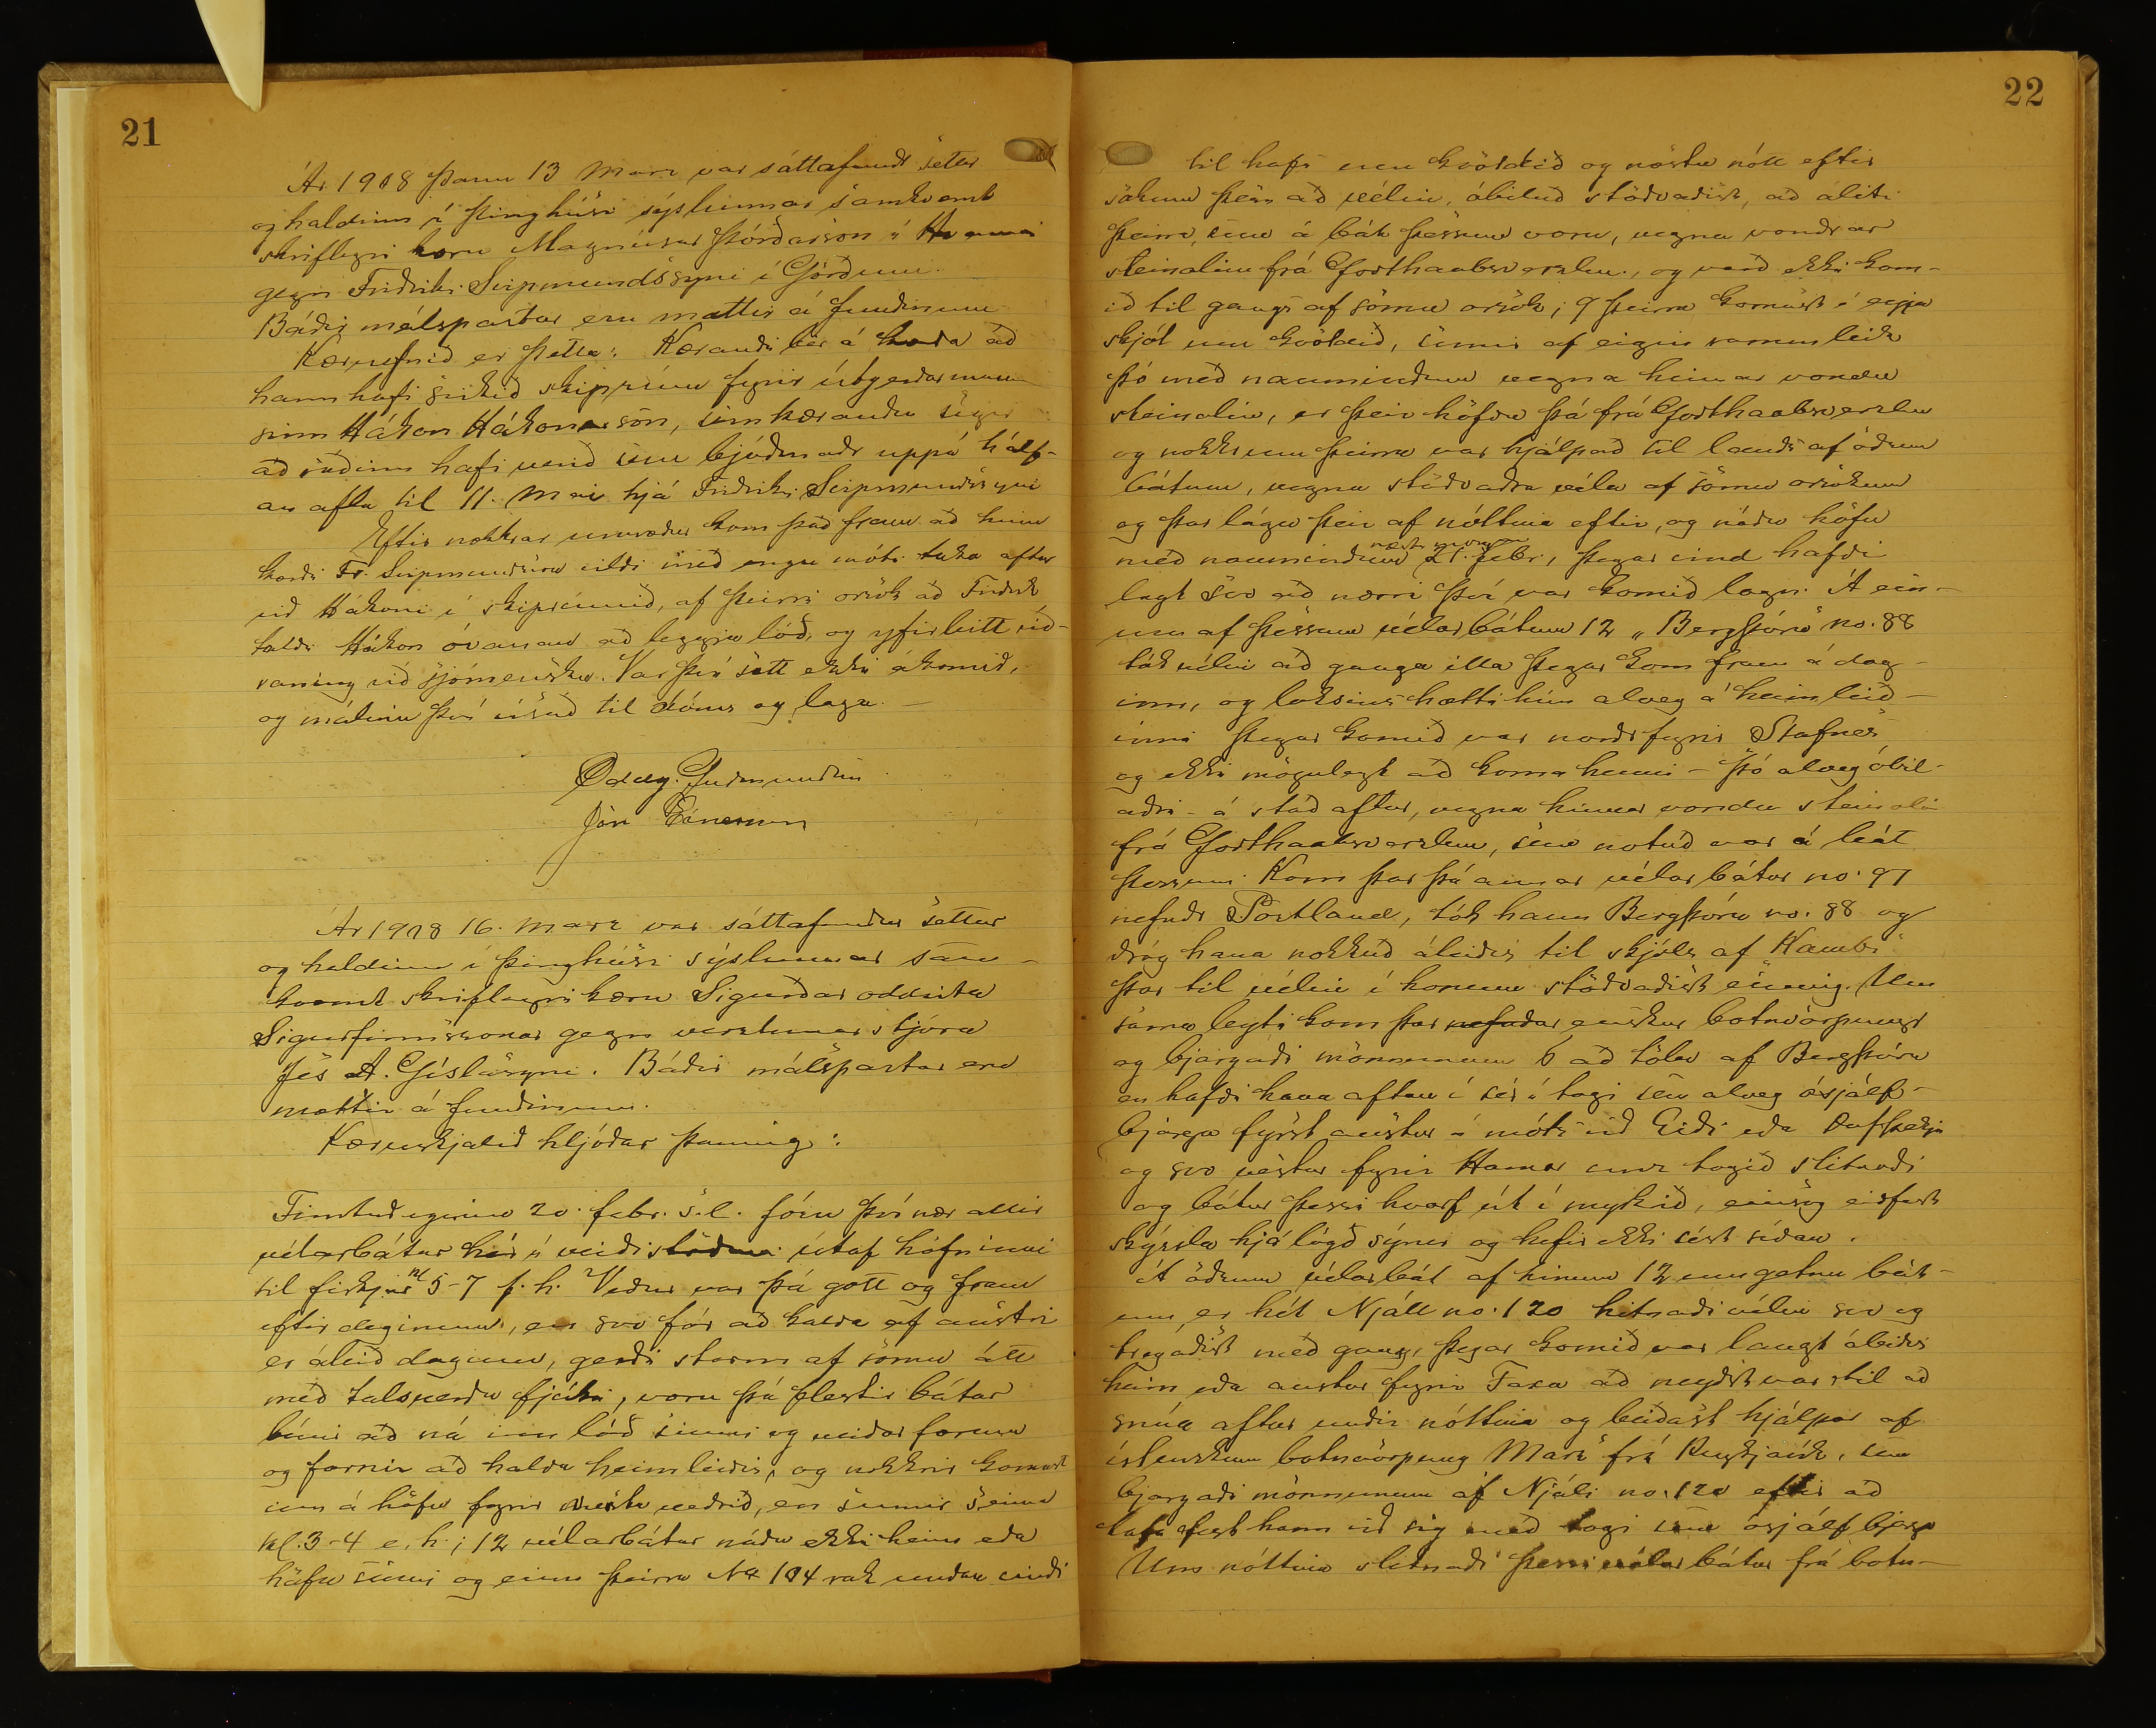 21
Ár 1908 þann 13 Marz var sáttafundr settur
og haldinn í þinghúsi sýslunnar samkvæmt
skriflegri kæru Magnúsar Þórðarson í
gegn Friðriki Svipmundssyni í Görðum.
Báðir málspartar eru mættir á fundinum
Kæruefnið er þetta: Kærandi ber á kærða að
hann hafi svikið skiprúm fyrir útgerðarmann
sinn Hákon Hákonarson, sem kærandu segir
að ráðinn hafi verið sem bjóðmaðr uppá hálf-
an afla til 11. Mai hjá Friðriki Svipmundssyni
Eftir nokkrar umræður kom það fram að hinn
kærði Fr. Svipmundsson vildi með engu móti taka aftur
við Hákoni í skiprúmið, af þeirri orsök að Friðrik
taldi Hákon óvanan að leggja lóð, og yfirleitt við-
vaning við sjómensku. Var því sátt ekki ákomið,
og málinu því vísað til dóms og laga. —
Oddg. Guðmundsen
Jón Einarsson
Ár 1908 16. Marz var sáttafundur settur
og haldinn í þinghúsi sýslunnar sam-
kvæmt skriflegri kæru Sigurðar oddvita
Sigurfinnssonar gegn verzlunarstjóra
Jes A. Gíslasyni. Báðir málspartar eru
mættir á fundinum.
Kæruskjalið hljóðar þannig:
Fimtudaginn 20. febr. s.l. fóru því nær allir
vélarbátar hér í veiðistöðinni útaf höfninni
til fiskjar kl 5-7 f.h. Veður var þá gott og fram
eftir deginum, en svo fór að kalda af austri
er áleið daginn, gerði storm af sömu átt
með talsverðu fjúki, voru þá flestir bátar
búnir að ná inn lóð sinni og veiðarfærum
og farnir að halda heimleiðis, og nokkrir komust
inn á höfn fyrir mesta veðrið, en sumir seinna
kl. 3-4 e.h.; 12 vélarbátar náðu ekki heim eða
höfn sinni og einn þeirra No 104 rak undan vindi
22
til hafs um kvöldið og næstu nótt eftir
sökum þess að vélin, óbiluð stöðvaðist, að áliti
þeirra, sem á bát þessum voru, vegna vondrar
steinolíu frá Godthaabsverzlun, og varð ekki kom-
ið til gangs af sömu orsök; 9 þeirra komust í eyja
skjól um kvöldið, sumir af eigin ramleik
þó með naumindum vegna hinnar vondu
steinolíu, er þeir höfðu þá frá Godthaabsverzlun
og nokkrum þeirra var hjálpað til lands af öðrum
bátum, vegna stöðvaðra véla af sömu orsökum
og þar lágu þeir af nóttina eftir, og náðu höfn
með naumindum næsta morgun 21. febr., þegar vind hafði
lægt svo að nærri því var komið logn. Á ein-
um af þessum vélarbátum 12 „Bergþóru" no. 88
tók vélin að ganga illa þegar kom fram á dag-
inn, og loksins hætti hún alveg á heimleið-
inni þegar komið var norðr fyrir Stafnes
og ekki mögulegt að koma henni – þó alveg óbil-
aðri – á stað aftur, vegna hinnar vondu steinolíu
frá Godthaabsverzlun, sem notuð var á bát
þessum. Kom þar þá annar vélarbátur no. 97
nefndr Portland, tók hann Bergþóru no. 88 og
dróg hana nokkuð áleiðis til skjóls af „Kambi"
þar til vélin í honum stöðvaðist einnig. Um
sama leyti kom þar nefndar enskur botnvörpungr
og bjargaði mönnunum 5 að tölu af Bergþóru
en hafði hana aftan í sér í togi sem alveg ósjálf-
bjarga fyrst austur á móts við Eiði eða
og svo vestur fyrir Hamar unz togið slitnaði
og bátur þessi hvarf út í myrkrið, einsog eiðfest
skýrsla hjálögð sýnir og hefir ekki sést síðan.
Á öðrum vélarbát af hinum 12 umgetnu bát-
um er hét Njáll no. 120 hitnaði vélin svo og
tregaðist með gang, þegar komið var langt áleiðis
heim eða austur fyrir Faxa að neyðst var til að
snúa aftur undir nóttina og beiðast hjálpar af
íslenskum botnvörpung „Marz" frá Reykjavík, sem
bjargaði mönnunum af Njáli no. 120 eftir að
hafa fest hann við sig með togi sem ósjálfbjarga
Um nóttina slitnaði þessi vélarbátur frá botn-